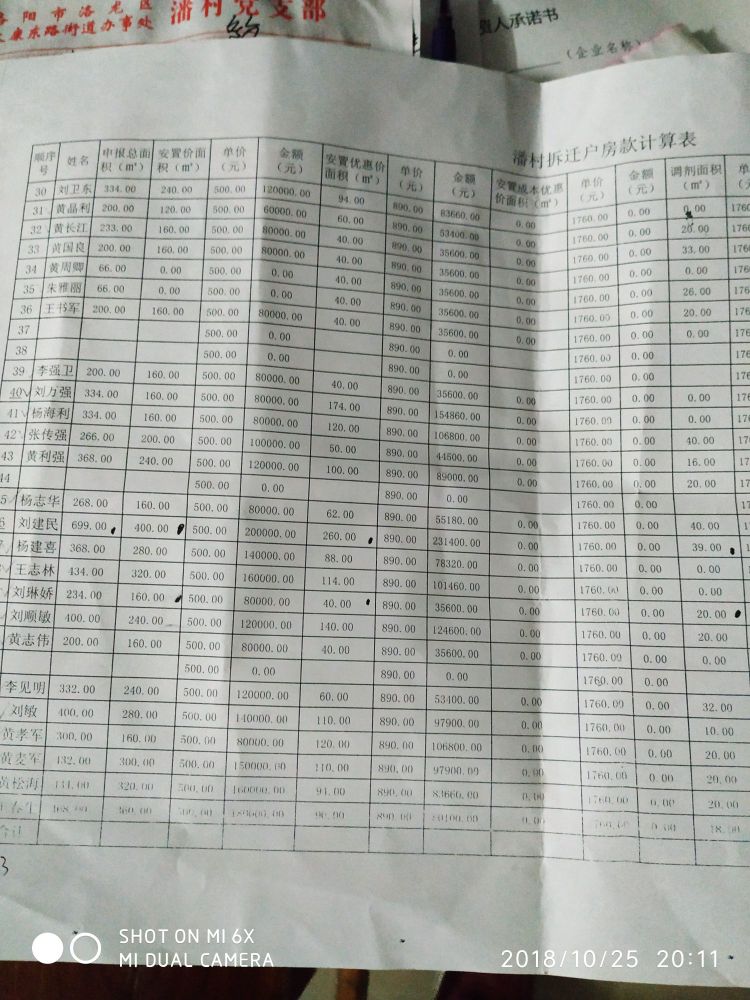 洛阳市洛龙区 潘村党支部
太康东路街道办事处
责人承诺书
（企业名称）
潘村拆迁户房款计算表
顺序号 姓名 申报总面积（㎡） 安置价面积（㎡） 单价（元） 金额（元） 安置优惠价面积（㎡） 单价（元） 金额（元） 安置成本优惠价面积（㎡） 单价（元） 金额（元） 调剂面积（㎡）
30 刘卫东 334.00 240.00 500.00 120000.00 94.00 890.00 83660.00 0.00 1760.00 0.00 0.00 1760
31 黄晶利 200.00 120.00 500.00 60000.00 60.00 890.00 53400.00 0.00 1760.00 0.00 20.00 1760
32 黄长江 233.00 160.00 500.00 80000.00 40.00 890.00 35600.00 0.00 1760.00 0.00 33.00 1760
33 黄国良 200.00 160.00 500.00 80000.00 40.00 890.00 35600.00 0.00 1760.00 0.00 0.00 1760
34 黄周卿 66.00 0.00 500.00 0.00 40.00 890.00 35600.00 0.00 1760.00 0.00 26.00 1760
35 朱雅丽 66.00 0.00 500.00 0.00 40.00 890.00 35600.00 0.00 1760.00 0.00 20.00 176
36 王书军 200.00 160.00 500.00 80000.00 40.00 890.00 35600.00 0.00 1760.00 0.00 0.00 176
37 500.00 0.00 890.00 0.00 1760.00 0.00 176
38 500.00 0.00 890.00 0.00 1760.00 0.00 176
39 李强卫 200.00 160.00 500.00 80000.00 40.00 890.00 35600.00 0.00 1760.00 0.00 0.00 176
40 刘万强 334.00 160.00 500.00 80000.00 174.00 890.00 154860.00 0.00 1760.00 0.00 0.00 176
41 杨海利 334.00 160.00 500.00 80000.00 120.00 890.00 106800.00 0.00 1760.00 0.00 40.00 176
42 张传强 266.00 200.00 500.00 100000.00 50.00 890.00 44500.00 0.00 1760.00 0.00 16.00 17
43 黄利强 368.00 240.00 500.00 120000.00 100.00 890.00 89000.00 0.00 1760.00 0.00 20.00 17
44 500.00 0.00 890.00 0.00 1760.00 0.00
5 杨志华 268.00 160.00 500.00 80000.00 62.00 890.00 55180.00 0.00 1760.00 0.00 40.00
刘建民 699.00 400.00 500.00 200000.00 260.00 890.00 231400.00 0.00 1760.00 0.00 39.00
杨建喜 368.00 280.00 500.00 140000.00 88.00 890.00 78320.00 0.00 1760.00 0.00 0.00
王志林 434.00 320.00 500.00 160000.00 114.00 890.00 101460.00 0.00 1760.00 0.00 0.00
刘琳娇 234.00 160.00 500.00 80000.00 40.00 890.00 35600.00 0.00 1760.00 0.00 20.00
刘顺敏 400.00 240.00 500.00 120000.00 140.00 890.00 124600.00 0.00 1760.00 0.00 20.00
黄志伟 200.00 160.00 500.00 80000.00 40.00 890.00 35600.00 0.00 1760.00 0.00 0.00
500.00 0.00 890.00 0.00 1760.00 0.00
李见明 332.00 240.00 500.00 120000.00 60.00 890.00 53400.00 0.00 1760.00 0.00 32.00
刘敏 400.00 280.00 500.00 140000.00 110.00 890.00 97900.00 0.00 1760.00 0.00 10.00
黄孝军 300.00 160.00 500.00 80000.00 120.00 890.00 106800.00 0.00 1760.00 0.00 20.00
黄麦军 432.00 300.00 500.00 150000.00 110.00 890.00 97900.00 0.00 1760.00 0.00 20.00
黄松海 434.00 320.00 500.00 160000.00 94.00 890.00 83660.00 0.00 1760.00 0.00 20.00
468.00 360.00 500.00 180000.00 90.00 890.00 80100.00 0.00 1760.00 0.00 18.00
合计
3
SHOT ON MI 6X
MI DUAL CAMERA
2018/10/25 20:11